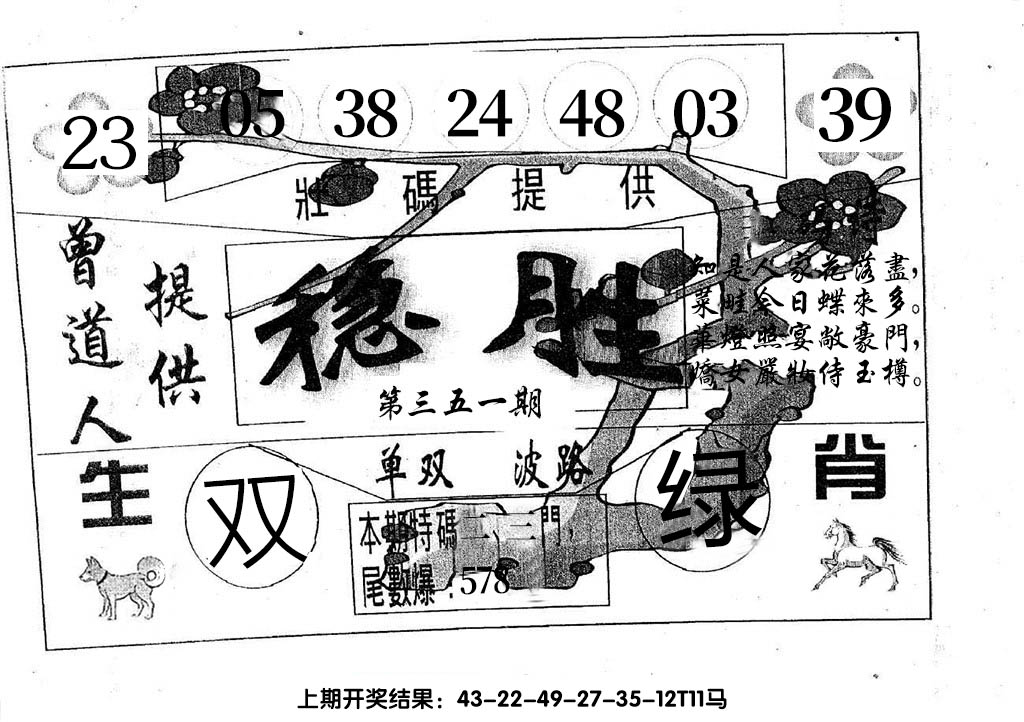 23 05 38 24 48 03 39
壯碼提供
特
曾道人
提供
稳胜
第三五一期
知是人家花落盡，
菜畦今日蝶來多。
華燈照宴敞豪門，
嬌女嚴妝侍玉樽。
单双 波路
生
双
绿
肖
本期特碼二、三門，
尾數爆：578
上期开奖结果：43-22-49-27-35-12T11马